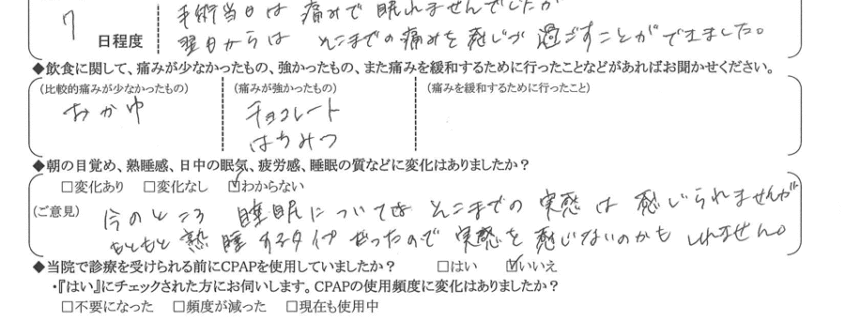 7 日程度
手術当日は 痛みで 眠れませんでしたが
翌日からは そこまでの痛みを 感じず 過ごすことができました。
◆飲食に関して、痛みが少なかったもの、強かったもの、また痛みを緩和するために行ったことなどがあればお聞かせください。
(比較的痛みが少なかったもの) (痛みが強かったもの) (痛みを緩和するために行ったこと)
おかゆ チョコレート
はちみつ
◆朝の目覚め、熟睡感、日中の眠気、疲労感、睡眠の質などに変化はありましたか?
□変化あり □変化なし ☑わからない
(ご意見) 今のところ 睡眠については そこまでの 実感 は 感じられませんが
もともと 熟睡するタイプだったので 実感を 感じないのかも しれません。
◆当院で診療を受けられる前にCPAPを使用していましたか? □はい ☑いいえ
・『はい』にチェックされた方にお伺いします。CPAPの使用頻度に変化はありましたか?
□不要になった □頻度が減った □現在も使用中